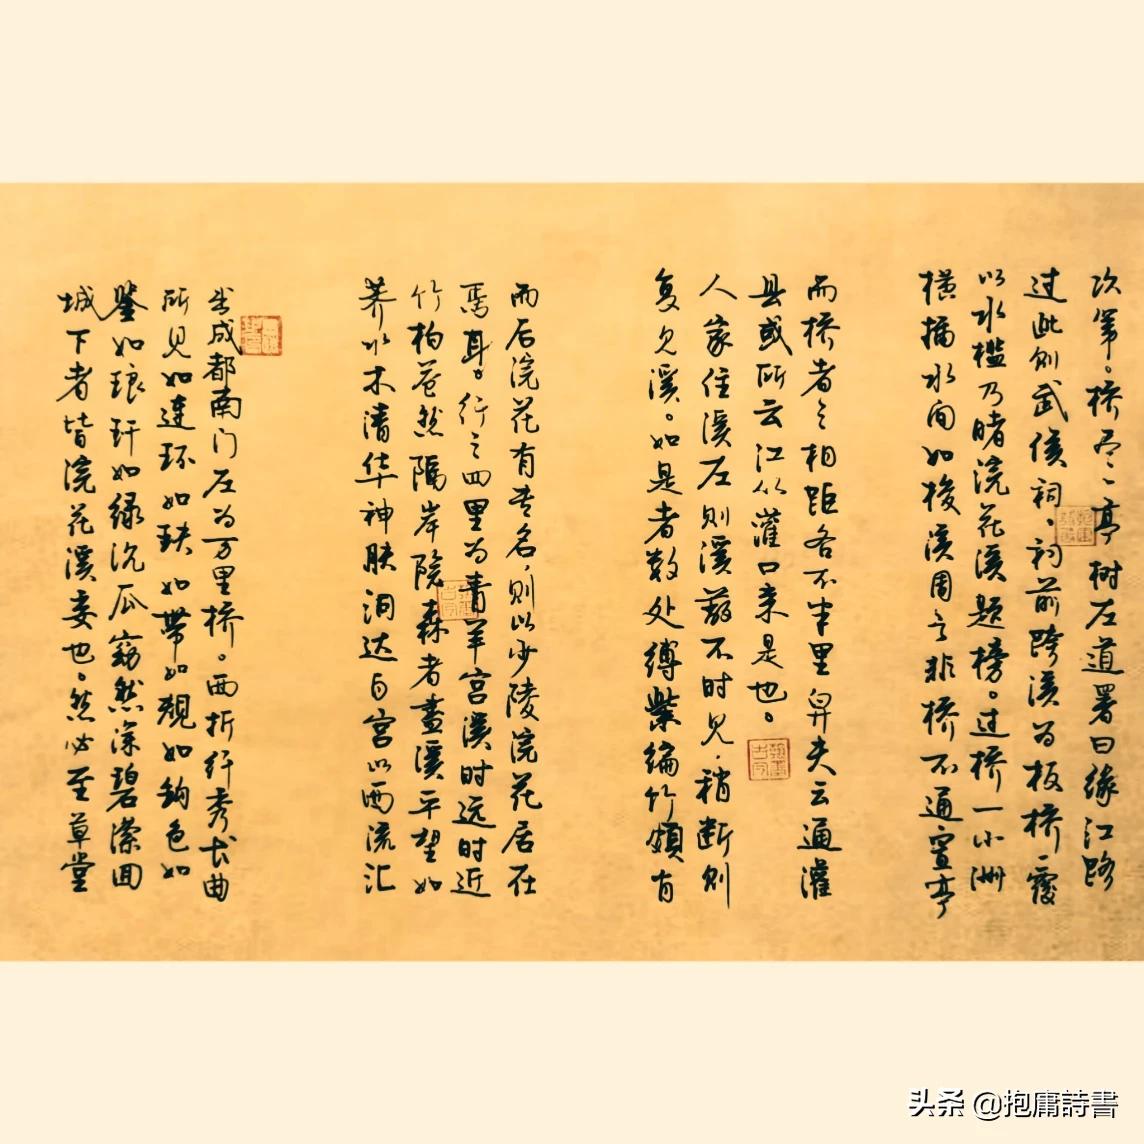 出成都南门左为万里桥。西折纤秀长曲
所见如連环如玦如帶如规如钩色如
鉴如琅玕如绿沉瓜窈然深碧潆回
城下者皆浣花溪委也。然必至草堂
而后浣花有专名,则以少陵浣花居在
焉耳。行三四里为青羊宫溪时远时近
竹柏苍然隔岸阴森者盡溪平望如
荠水木清华神肤洞达自宫以西流汇
而桥者三相距各不半里舁夫云通灌
县或所云江从灌口来是也。
人家住溪左则溪蔽不时见,稍断则
复见溪。如是者数处缚柴编竹颇有
次第。桥尽一亭树左道署曰缘江路
过此则武侯祠、祠前跨溪为板桥一覆
以水槛乃睹浣花溪题榜。过桥一小洲
横插水面如梭溪周之非桥不通置亭
头条 @抱庸詩書